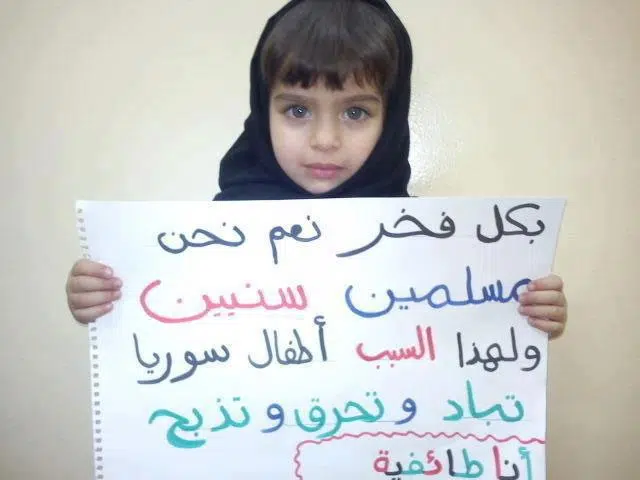 بكل فخر نعم نحن
مسلمين سنيين
ولهذا السبب أطفال سوريا
تباد وتحرق وتذبح
أنا طائفية